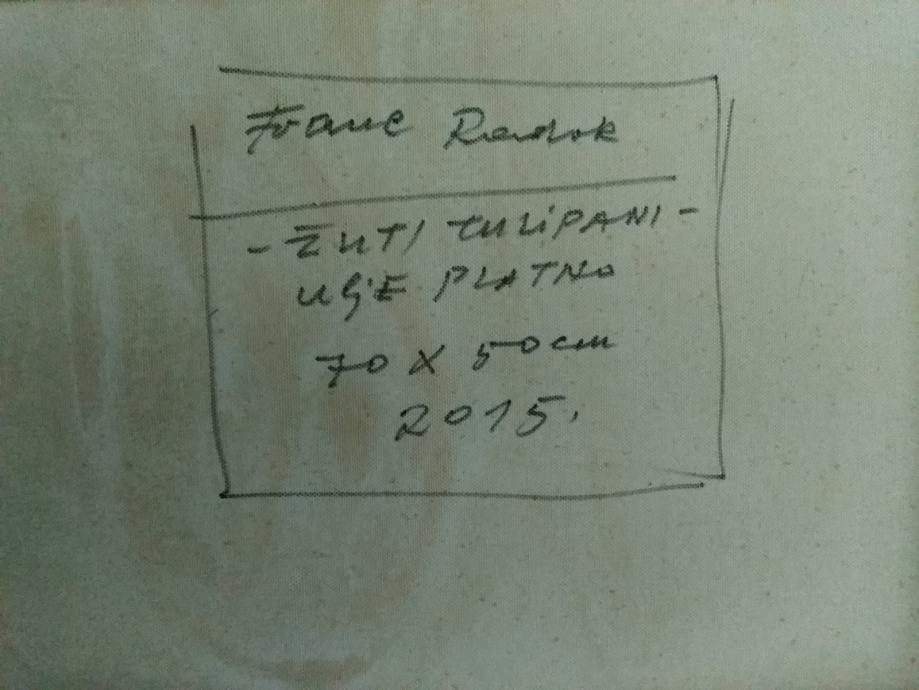 Franc Radok
- ŽUTI TULIPANI -
ULJE PLATNO
70 X 50 cm
2015.